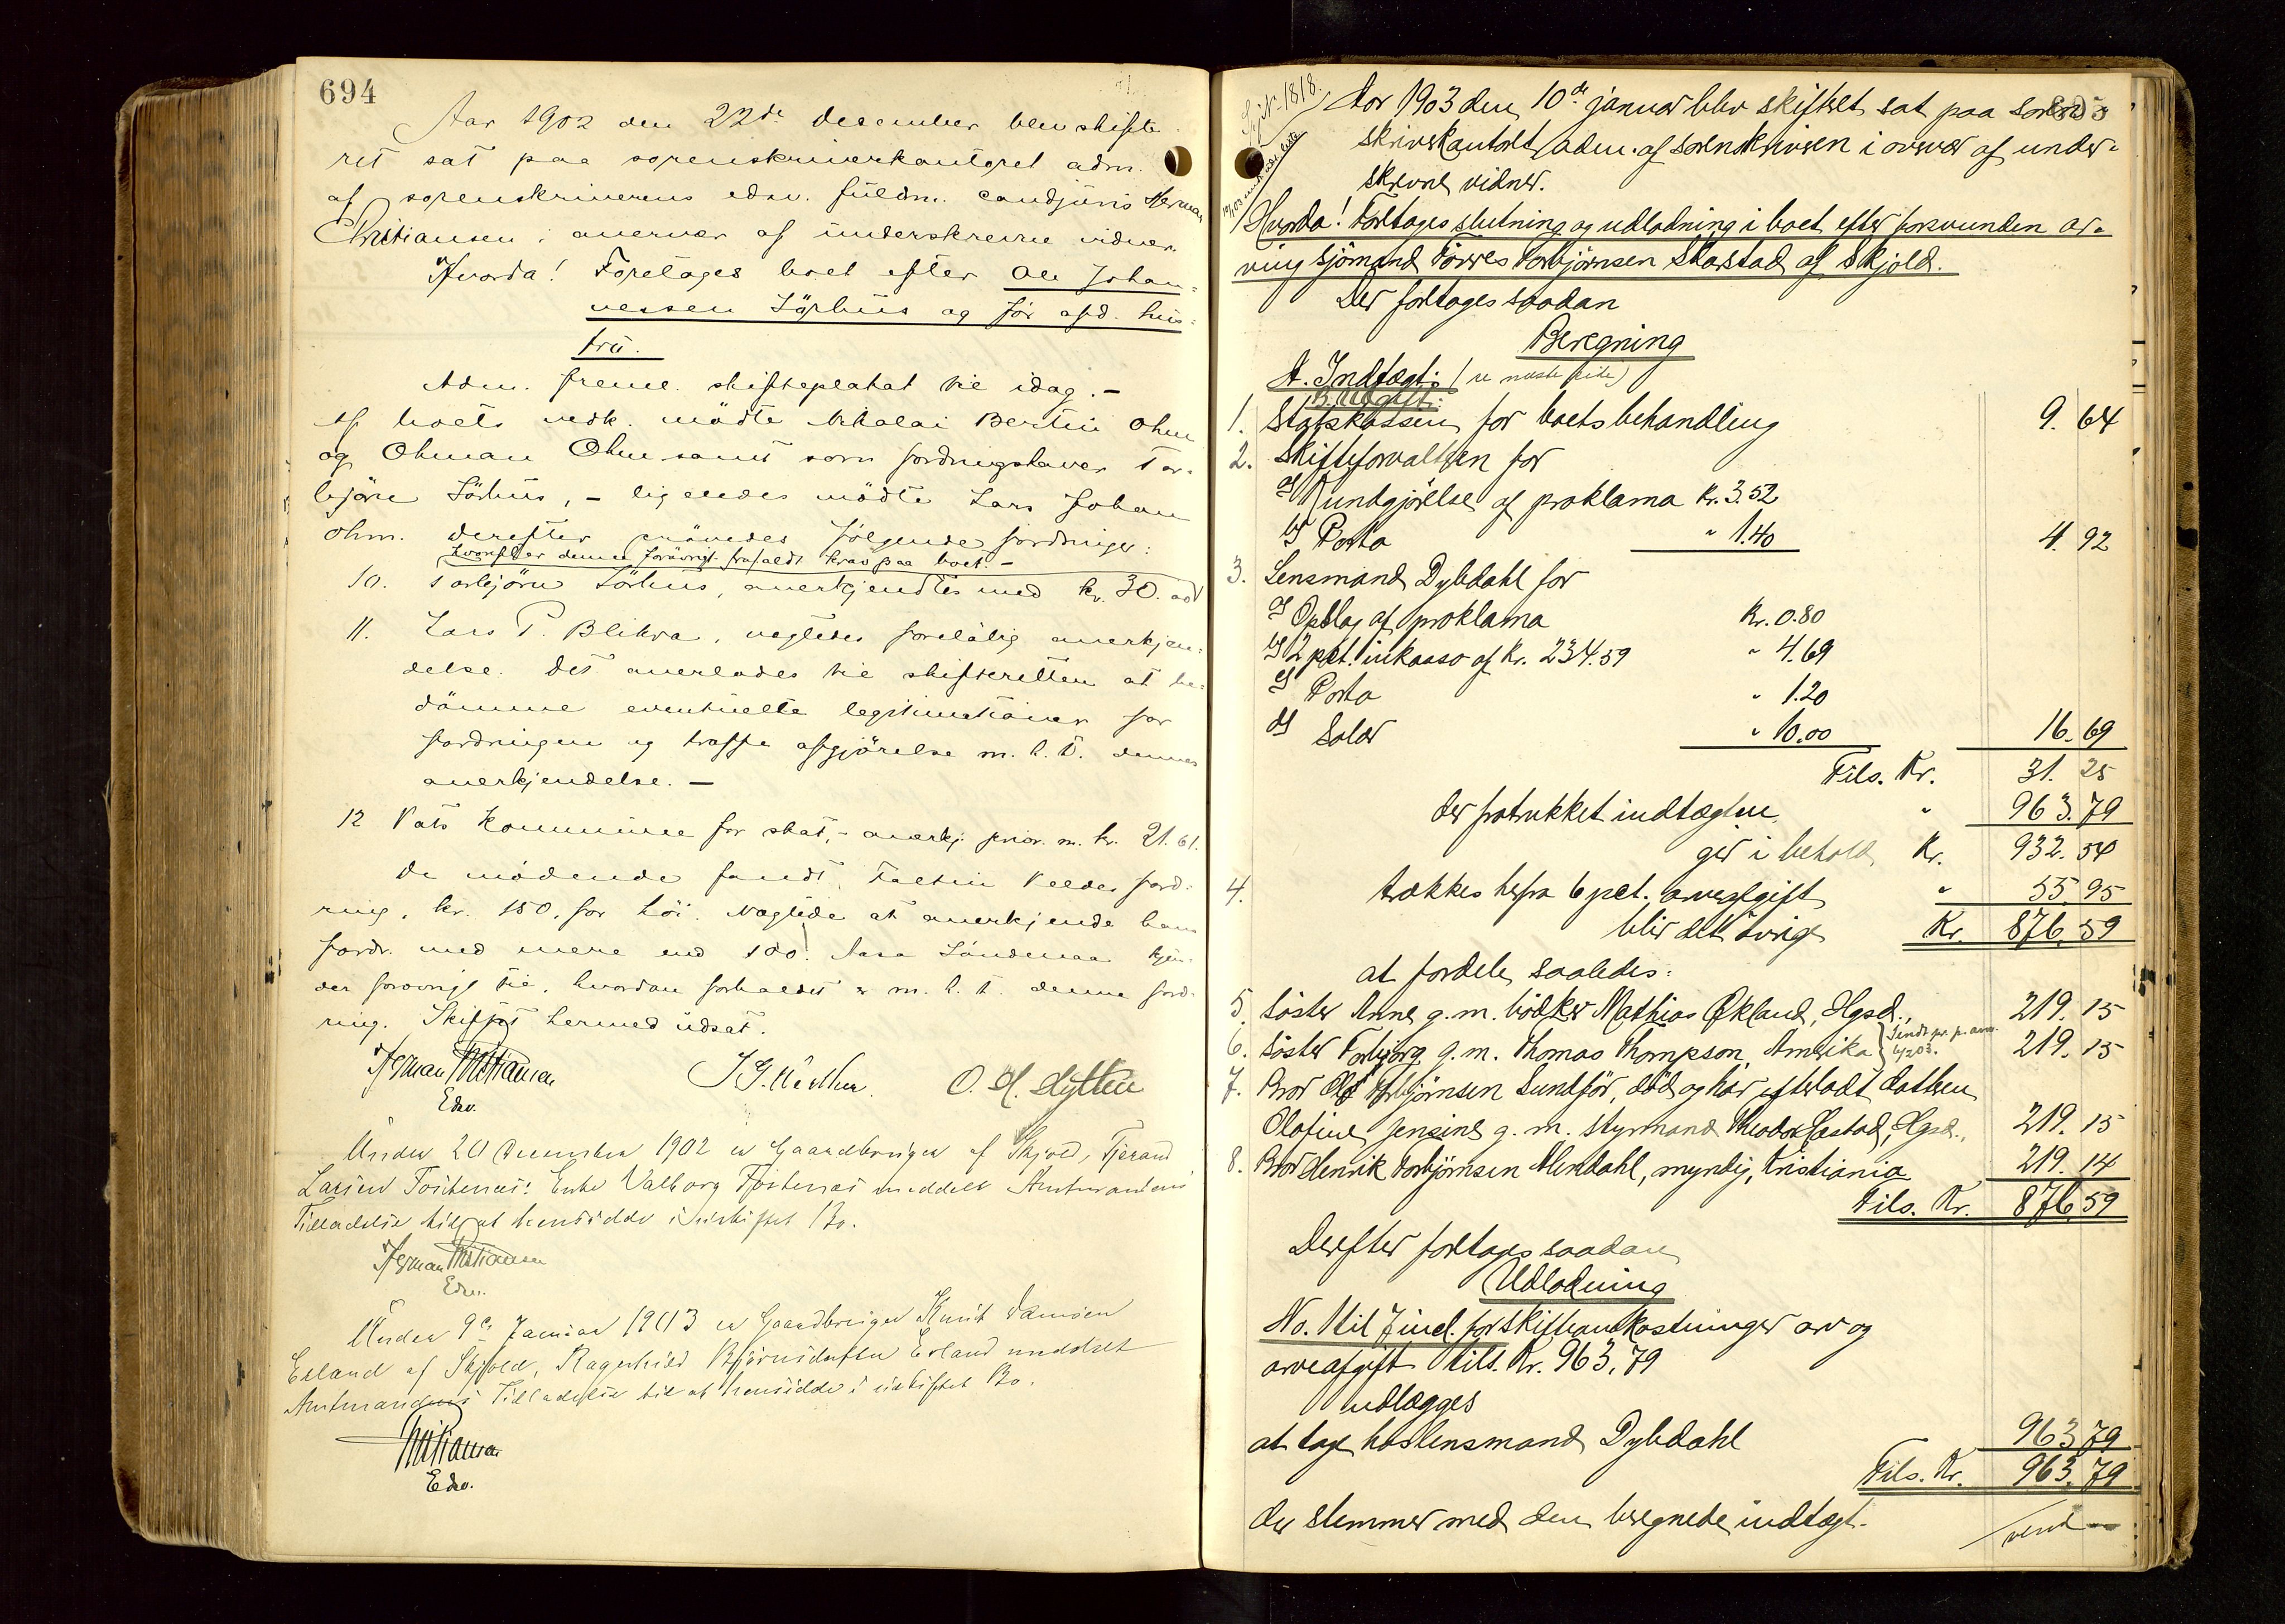 694
Aar 1902 den 22de december blev skifte
ret sat paa sorenskriverkontoret adm.
af sorenskriverens edsv. fuldm. cand juris Herman
Christiansen i overvær af underskrevne vidner.
Hvorda! Foretages boet efter Ole Johan-
nessen Sörhus og för afd. hus-
tru.
Adm. freml. skifteplakat til idag. –
Af boets vedk. mödte Nikolai Bertin Ohm
og Ohman Ohm samt som fordringshaver Tor-
björn Sörhus, – ligeledes mödte Lars Johan
Ohm. derefter prövedes fölgende fordringer:
hvorefter denne forövrigt frafaldt krav paa boet. –
10. Torbjörn Sörhus, anerkjendtes med kr. 30.
11. Lars P. Blikra, negtedes forelöbig anerkjen-
delse. Det overlodes til skifteretten at be-
dömme eventuelle legitimationer for
fordringen og træffe afgjörelse m. h. t. dennes
anerkjendelse. –
12 Vats Kommune for skat, – anerkj. prior. m. kr. 21.61.
De mödende fandt Veldes ford-
ring, kr. 150, for höi. Negtede at anerkjende hans
fordr. med mere end 100! Aasa kjen-
der forövrigt til, hvordan forholdet er m. h. t. denne ford-
ring. Skiftet hermed udsat.
Herman Christiansen
Edsv.
O. H. Lytten
Under 20 December 1902 er Gaardbruger af Skjold, Tjerand
Larsen Tostenæs: Enke Valborg Tostenæs meddelt Amtmandens
Tilladelse til at hensidde i uskiftet Bo.
Herman Christiansen
Edsv.
Under 9de Januar 1903 er Gaardbruger Knut Samson
Erland af Skjold, Ragnhild Bjørnsdatter Erland meddelt
Amtmandens Tilladelse til at hensidde i uskiftet Bo.
Christiansen
Edsv.
Aar 1903 den 10de januar blev skifteret sat paa soren-
skriverkontoret, adm. af sorenskriveren i overvær af under-
skrevne vidner.
Hvorda! Foretages slutning og udlodning i boet efter forsvunden ar-
ving sjömand Torres Torbjörnsen Skorstad af Skjold.
Der foretages saadan
Beregning
A. Indtægt: (se næste side)
B. Udgift:
1. Statskassen for boets behandling 9. 64
2. Skifteforvalteren for
a) Kundgjörelse af proklama Kr. 3.52
b) Porto " 1.40 4. 92
3. Lensmand Dybdahl for
a) Opslag af proklama Kr. 0.80
b) 2 pct. inkasso af Kr. 234.59 " 4.69
c) Porto " 1.20
d) Salær " 10.00 16. 69
Tils. Kr. 31. 25
der fratrukket indtægten " 963.79
gir i behold Kr. 932. 54
4. trækkes herfra 6 pct. arveafgift " 55.95
blir det övrige Kr. 876.59
at fordele saaledes:
5. Söster Anne g. m. bödker Mathias Økland, Hgsd., 219. 15
6. Söster Torbjörg g. m. Thomas Thompson, Amerika 219. 15
7. Bror Ole Torbjörnsen Sundför, död og har efterladt datteren
Olofine Jensine g. m. styrmand Theodor Hastad, Hgsd., 219. 15
8. Bror Henrik Torbjörnsen Alendahl, myndig, Kristiania 219. 14
Tils. Kr. 876.59
Derefter foretages saadan
Udlodning
No. 1 til 7 incl. for skifteomkostninger arv og
arveafgift tils. Kr. 963,79
udlægges
at tage hos lensmand Dybdahl 963,79
Tils. Kr. 963. 79
der stemmer med den beregnede indtægt.
vend